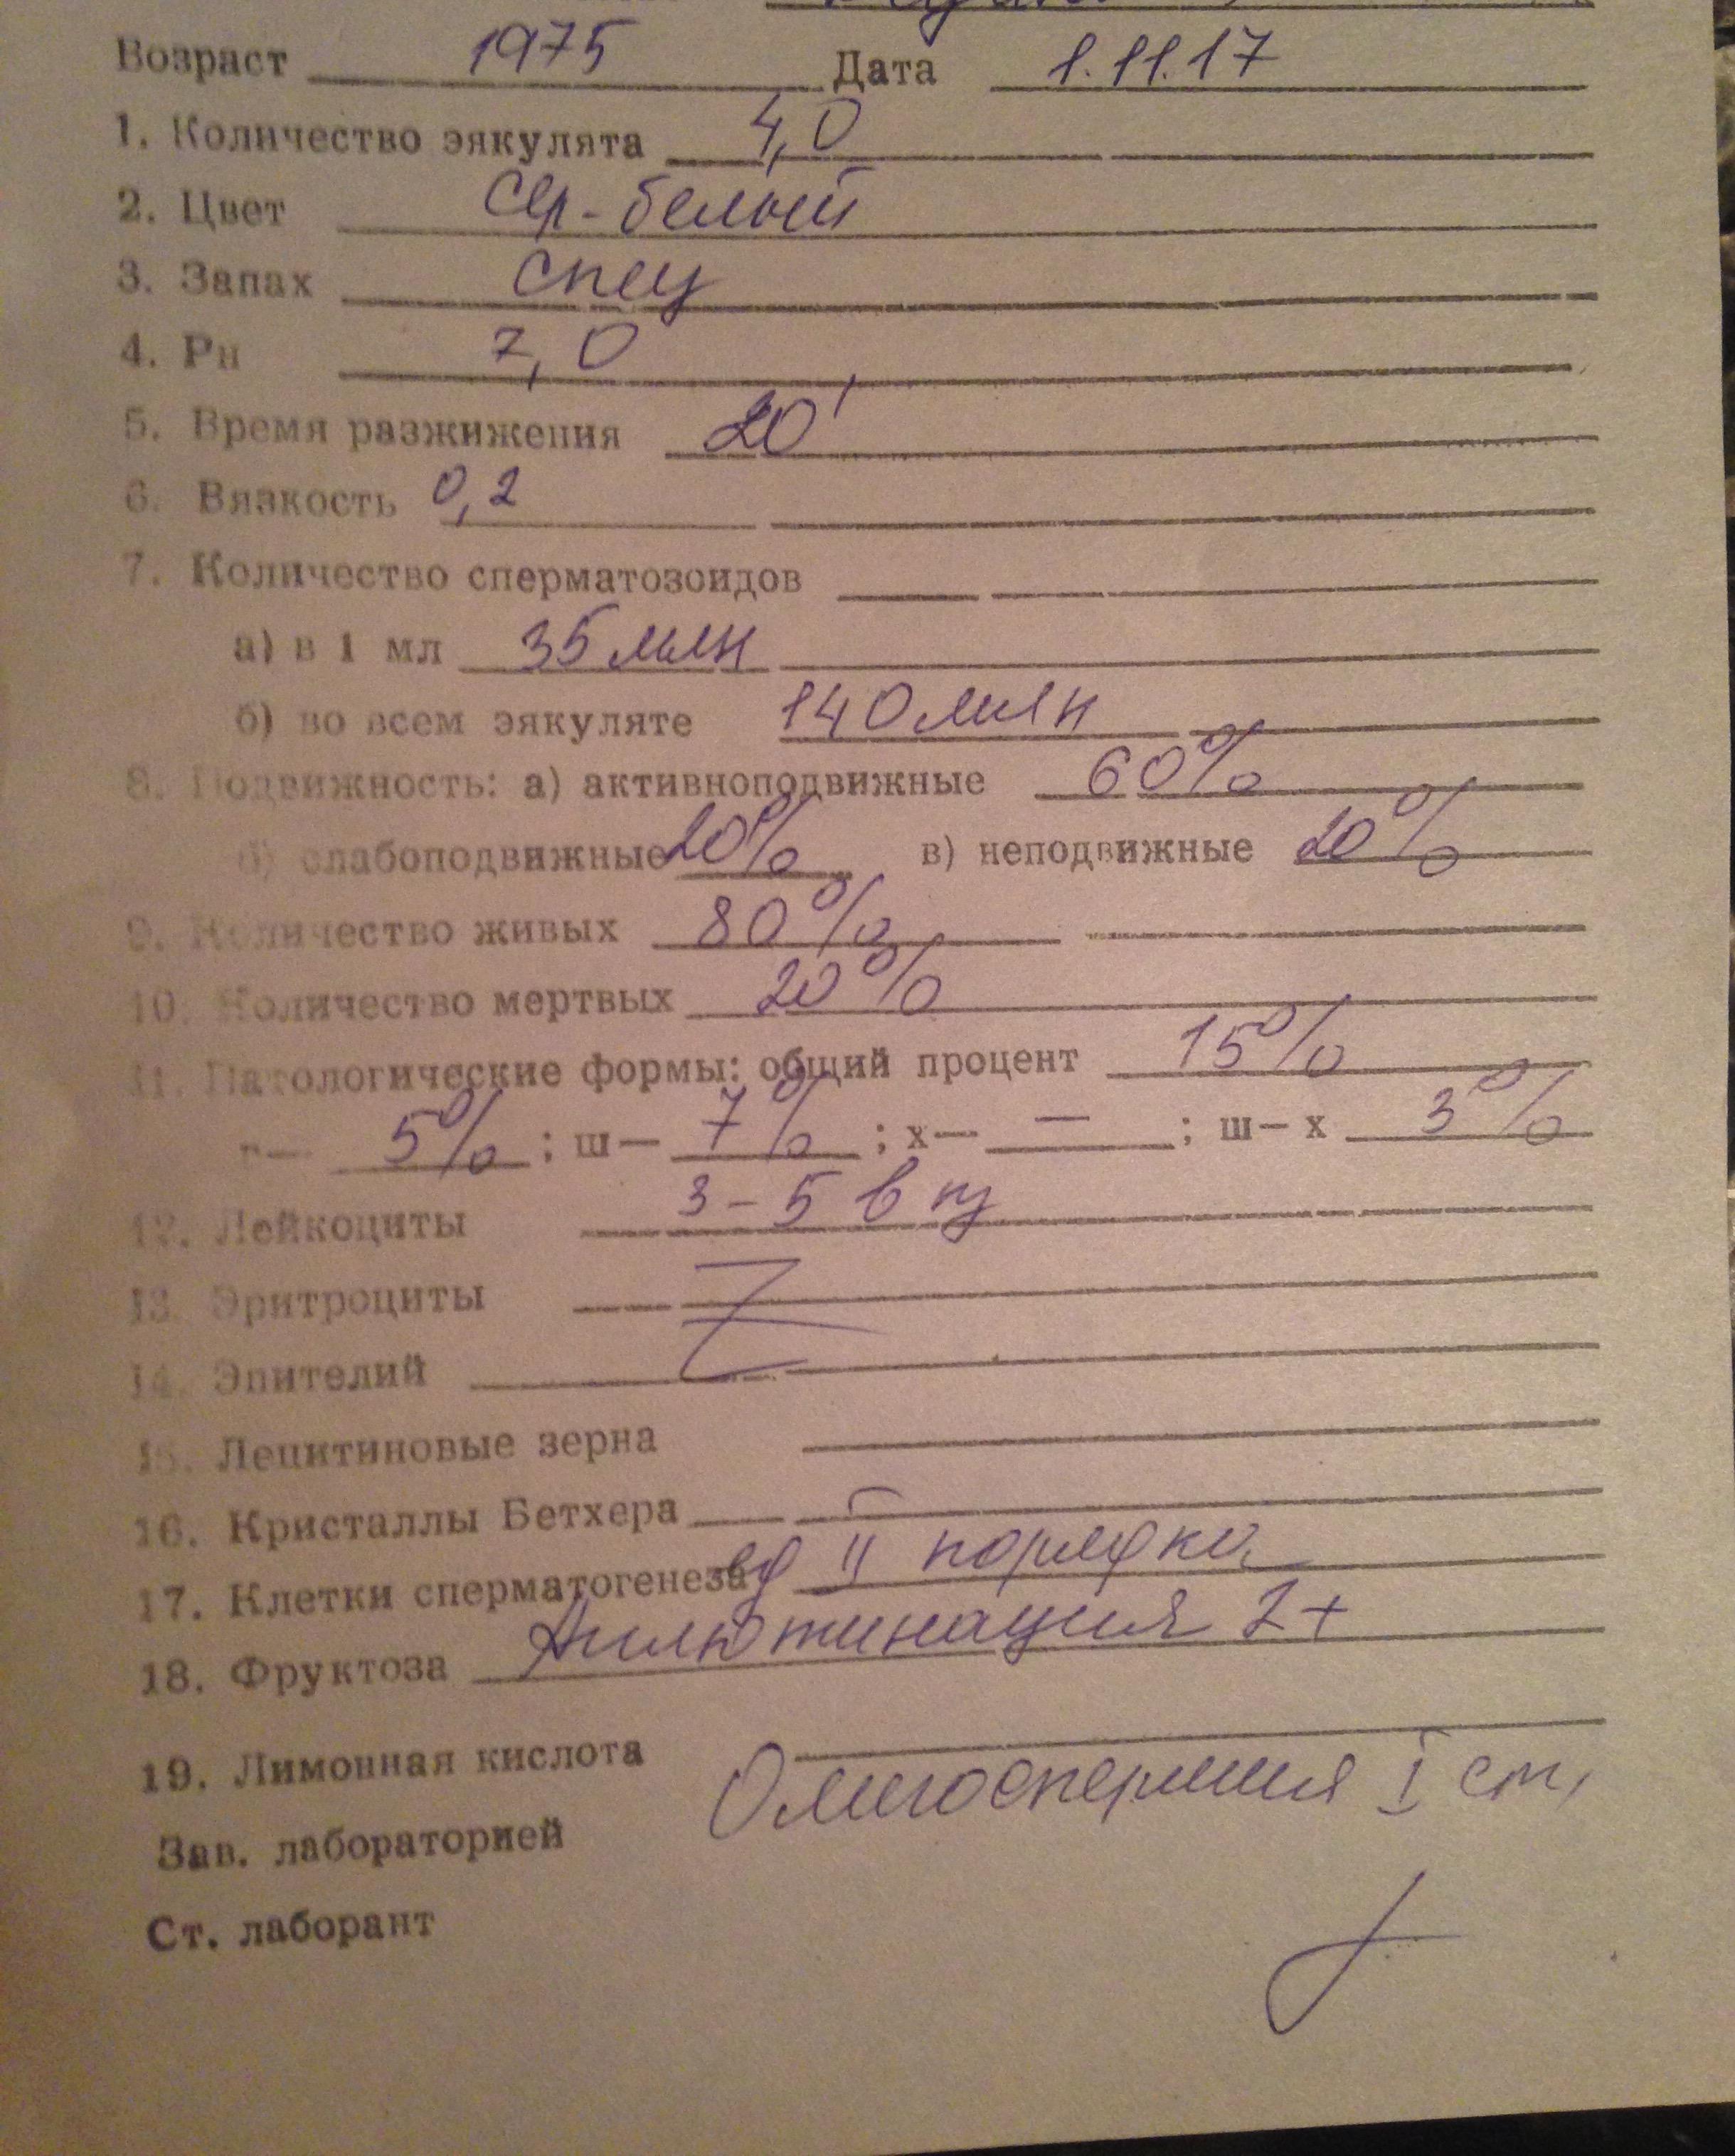 Возраст 1975 Дата 1.11.17
1. Количество эякулята 4,0
2. Цвет сер-белый
3. Запах спец
4. Рн 7,0
5. Время разжижения 20'
6. Вязкость 0,2
7. Количество сперматозоидов
а) в 1 мл 35 млн
б) во всем эякуляте 140 млн
8. Подвижность: а) активноподвижные 60%
б) слабоподвижные 20% в) неподвижные 20%
9. Количество живых 80%
10. Количество мертвых 20%
11. Патологические формы: общий процент 15%
г— 5% ; ш— 7% ; х— — ; ш—х 3%
12. Лейкоциты 3-5 в пз
13. Эритроциты
14. Эпителий
15. Лецитиновые зерна
16. Кристаллы Бетхера
17. Клетки сперматогенеза II порядка
18. Фруктоза Агглютинация 2+
19. Лимонная кислота
Олигоспермия I ст,
Зав. лабораторией
Ст. лаборант